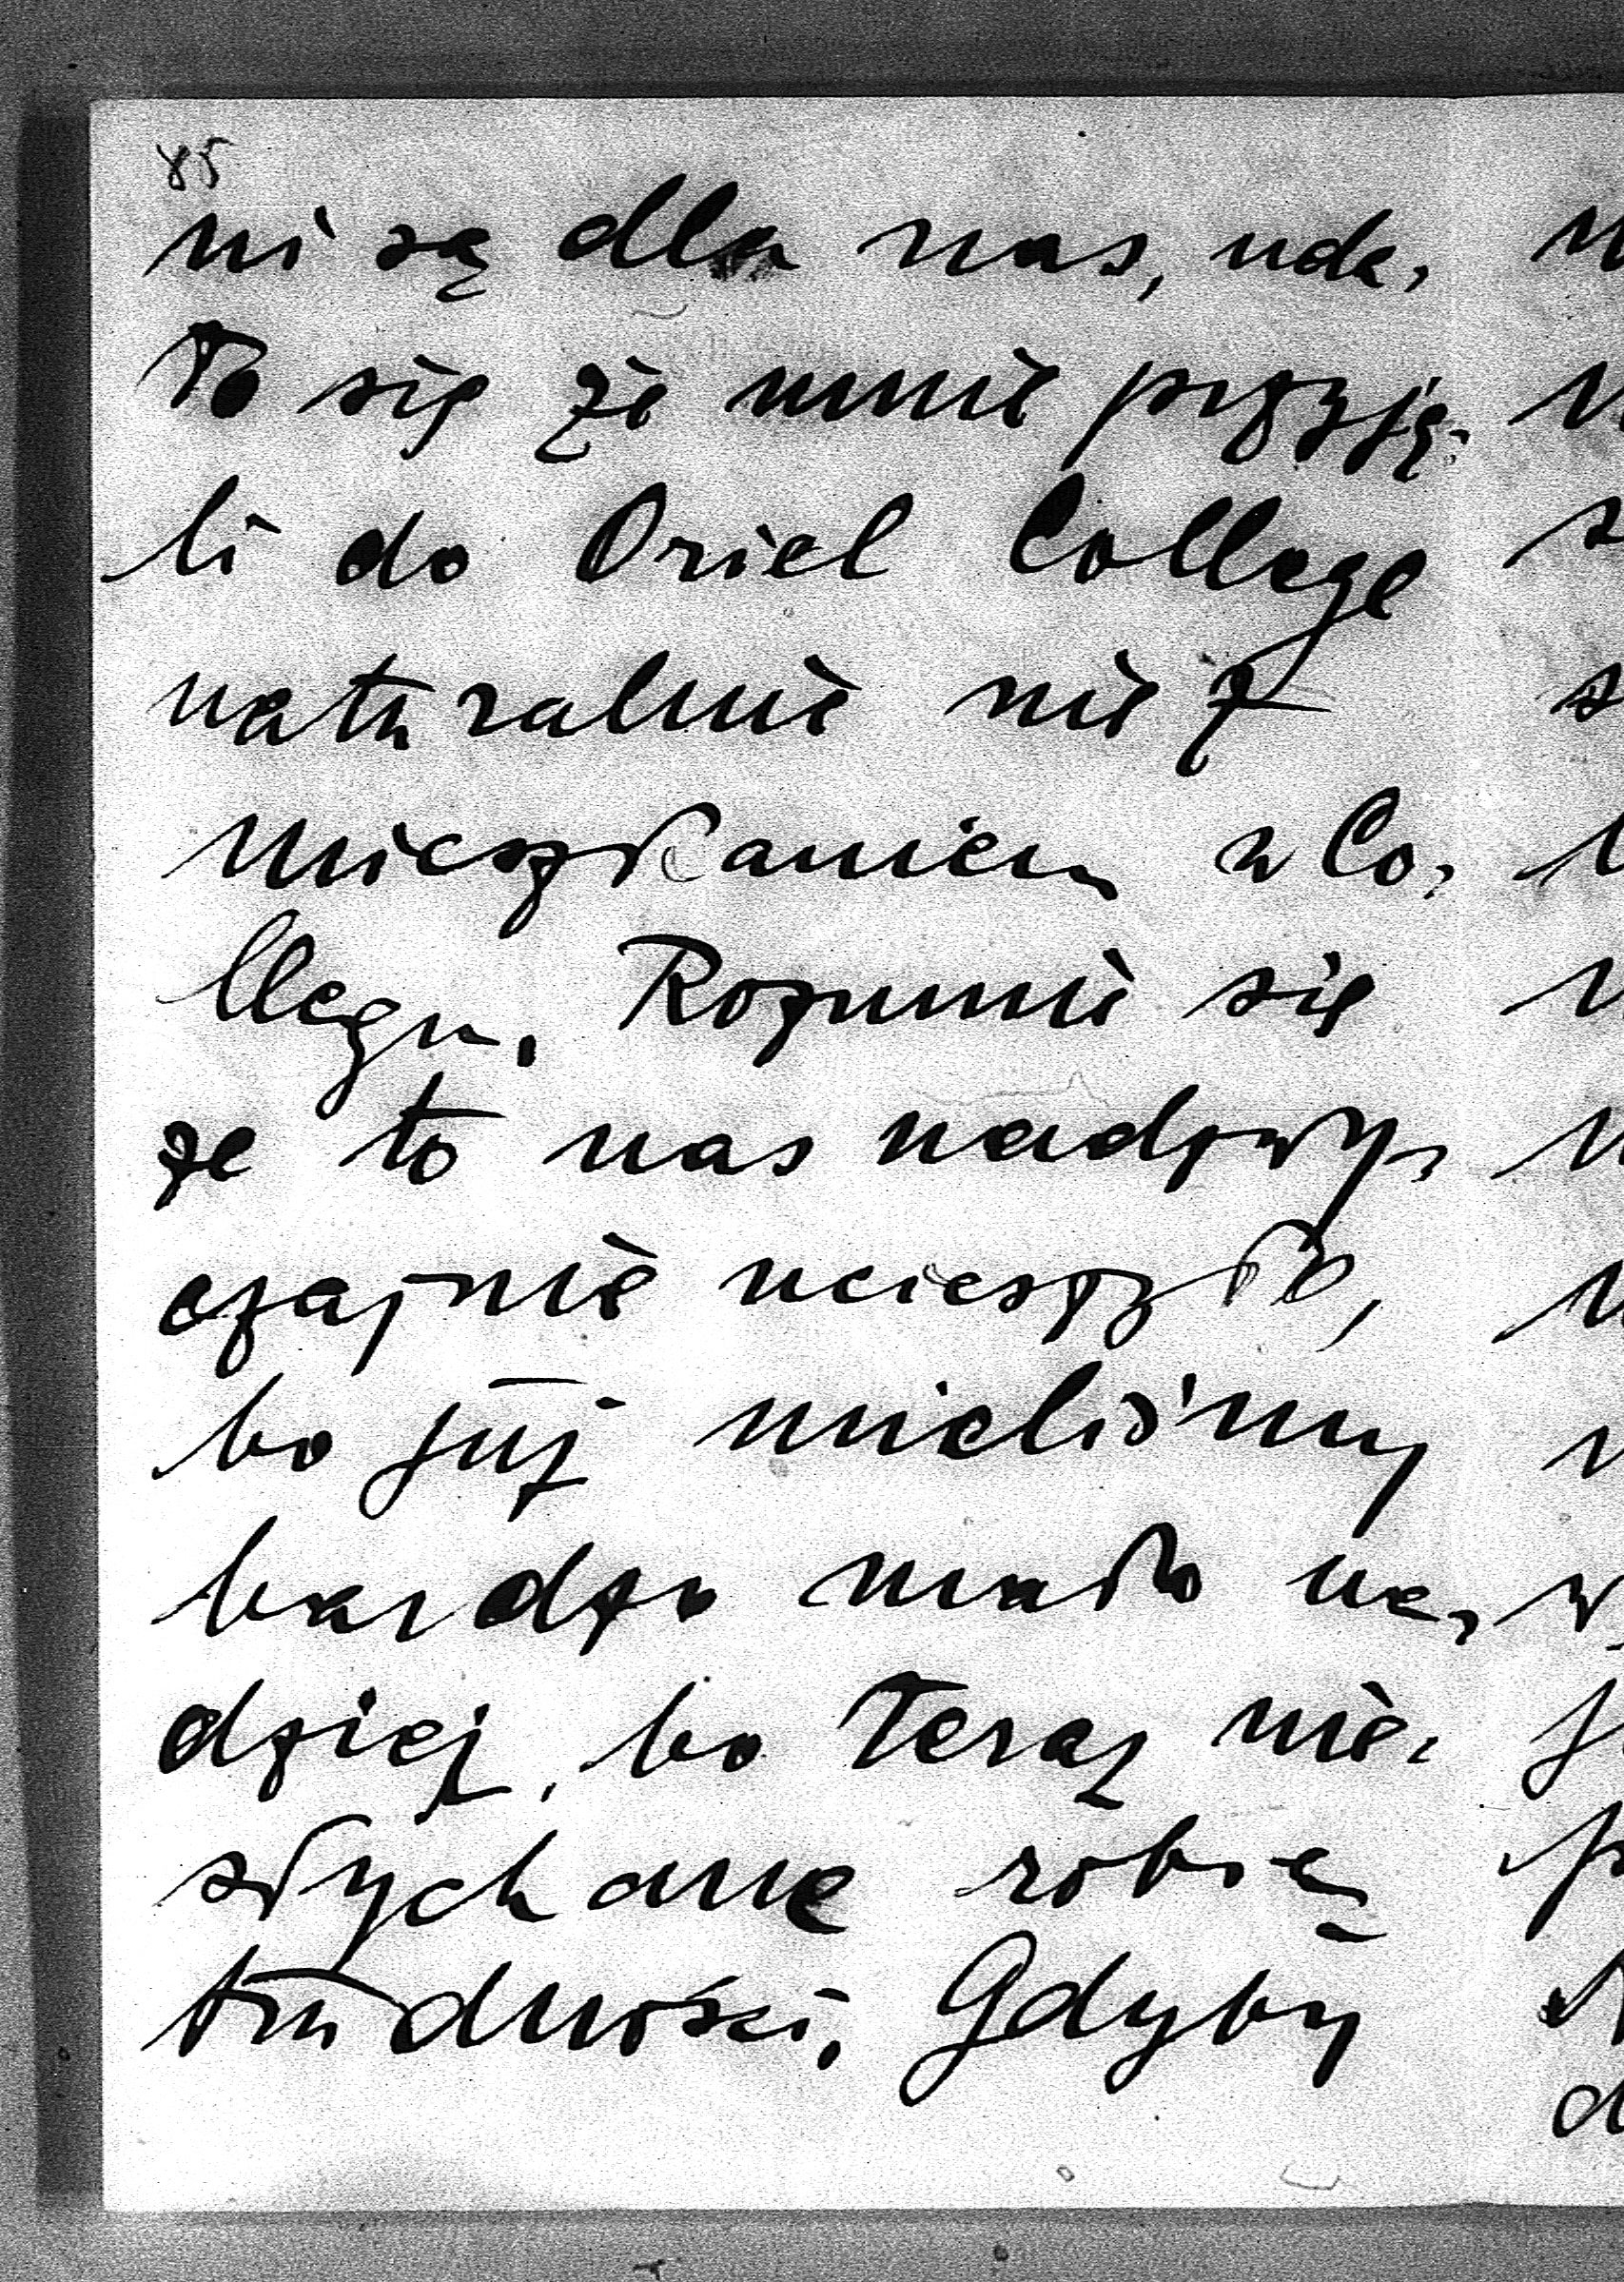 85
ni są dla nas, uda,
ło się że mnie przyję,
li do Oriel College
naturalnie nie z
mieszkaniem w Co,
llegu. Rozumie się
że to nas nadzwy,
czajnie ucieszyło,
bo już mieliśmy
bardzo mało na,
dziej, bo teraz nie,
słychane robią
trudności. Gdyby